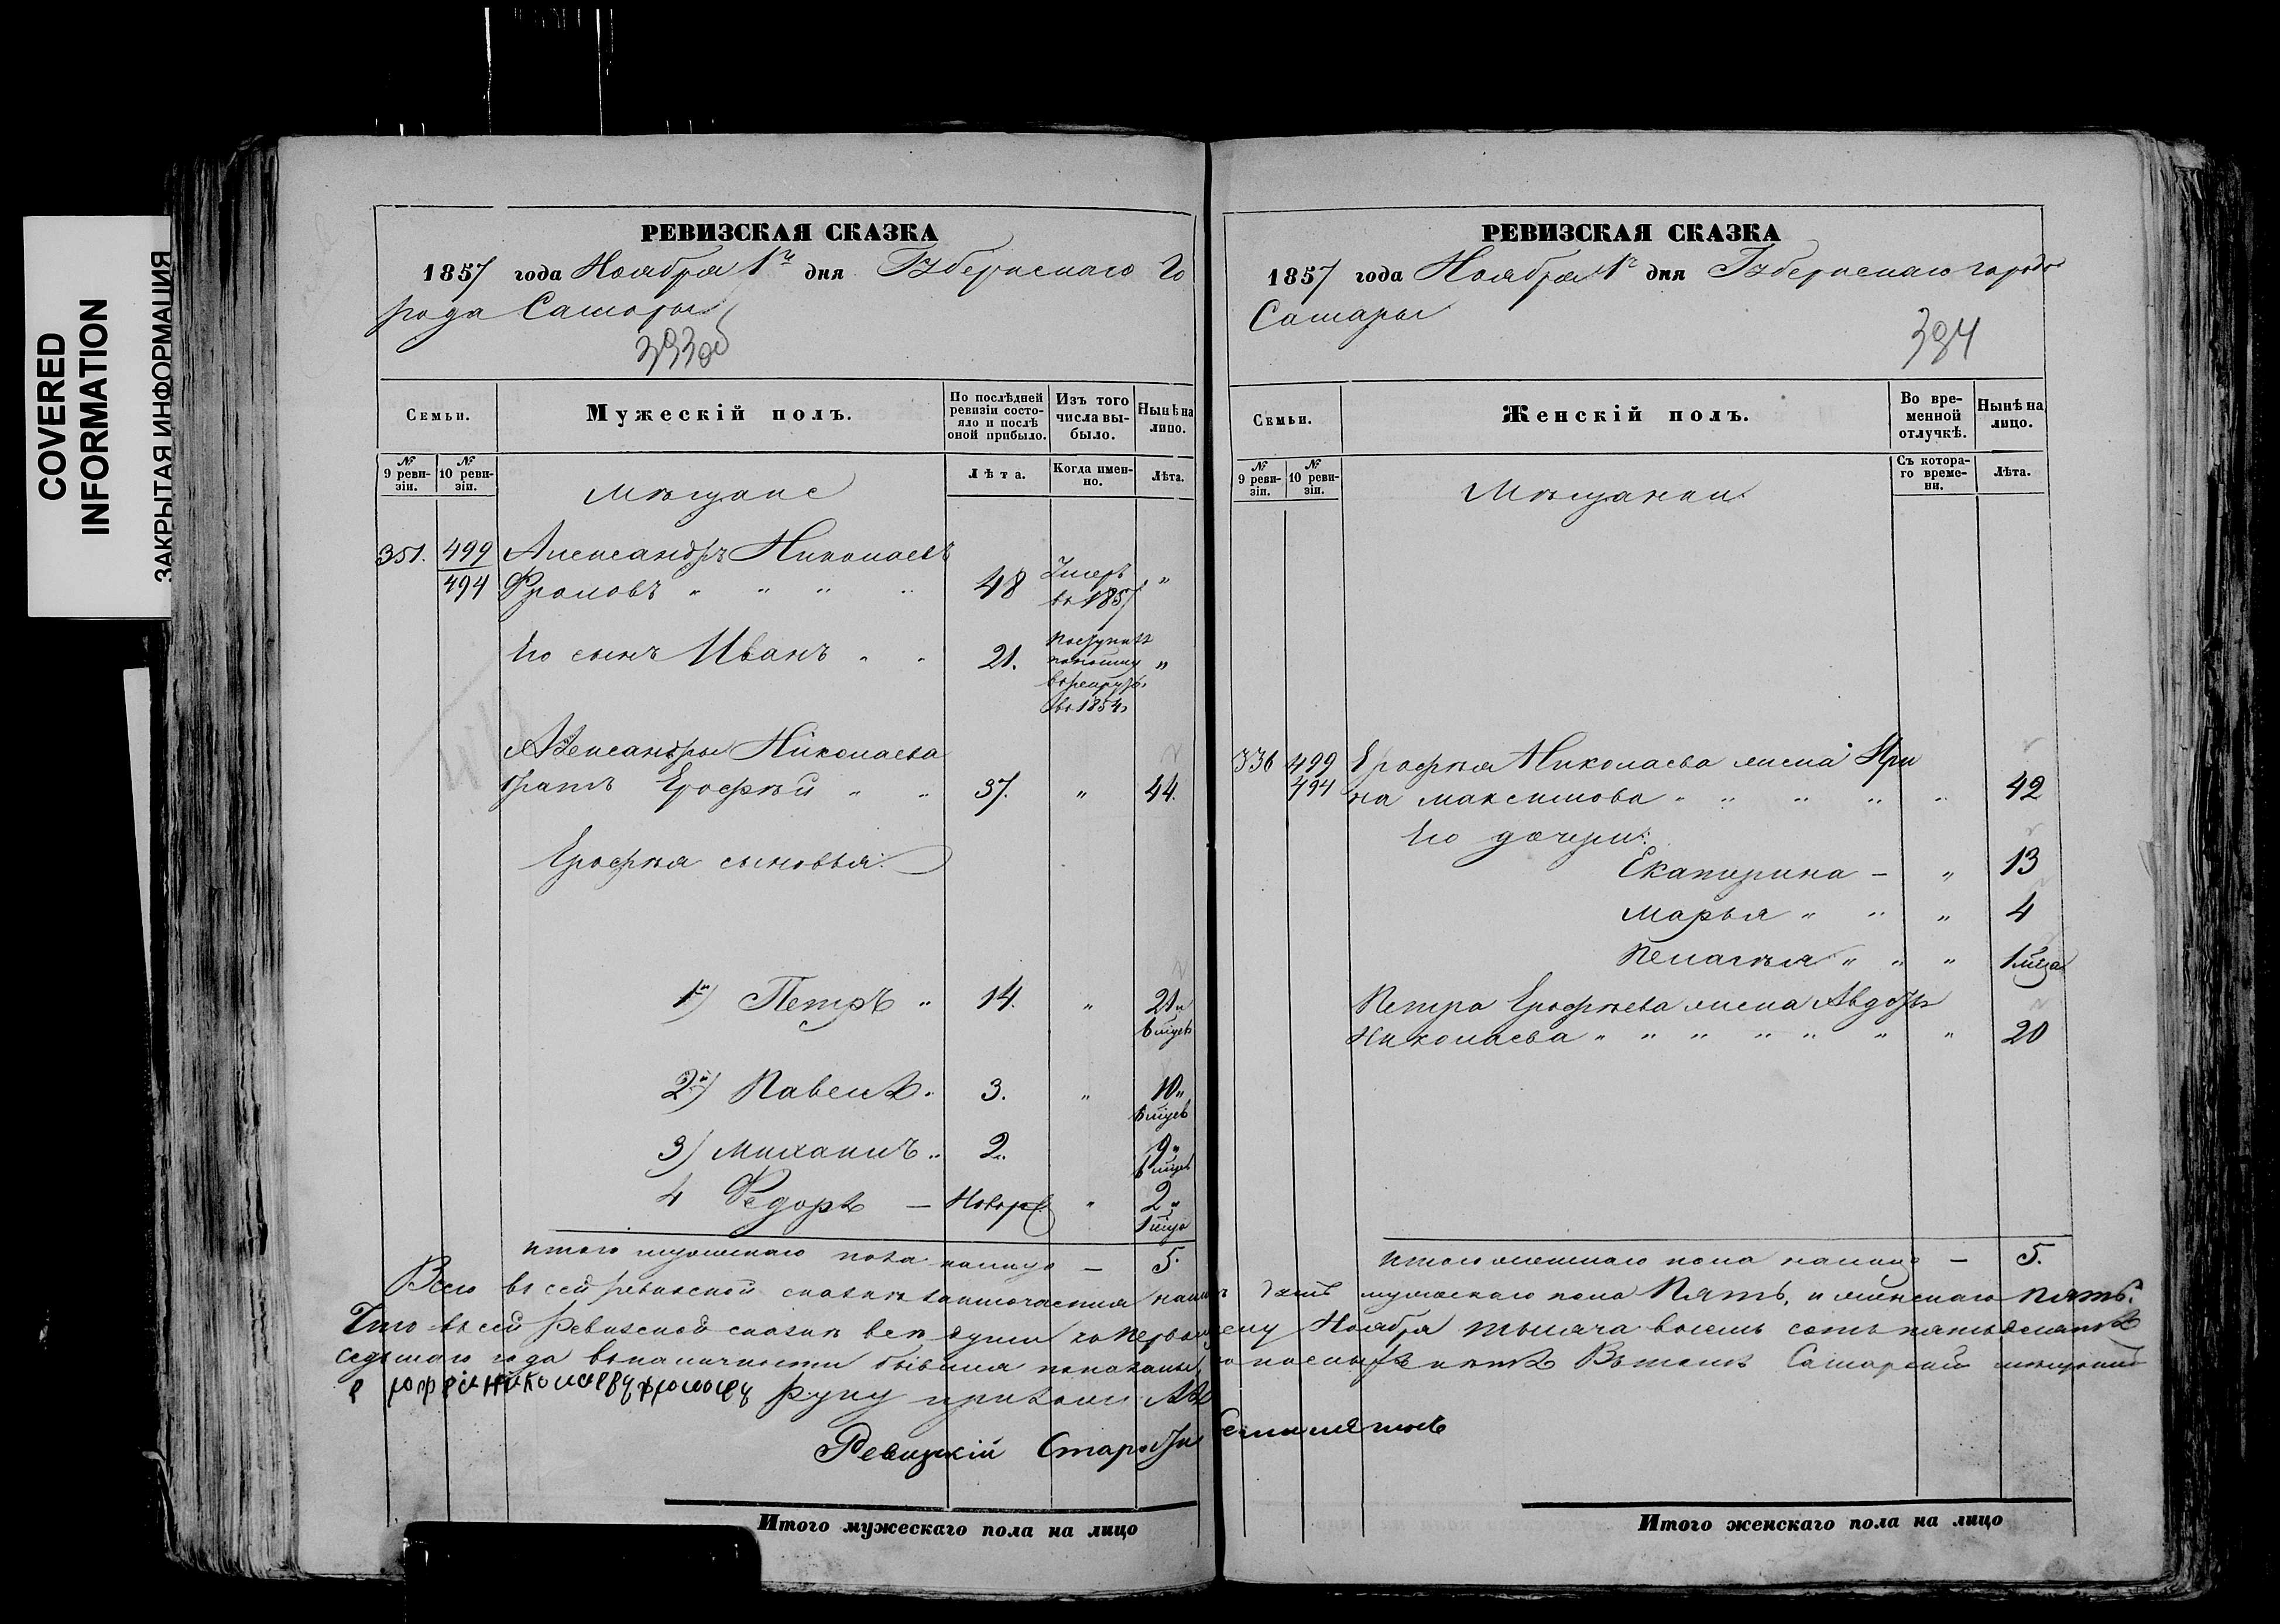 COVERED
INFORMATION
ЗАКРЫТАЯ ИНФОРМАЦИЯ
РЕВИЗСКАЯ СКАЗКА
1857 года Ноября 1го дня Губернскаго Го
рода Самары
393об
Семьи.
Мужескій полъ.
По послѣдней ревизіи состояло и послѣ оной прибыло.
Изъ того числа выбыло.
Нынѣ на лицо.
№ 9 ревизіи.
№ 10 ревизіи.
Мѣщане
Лѣта.
Когда именно.
Лѣта.
351. 499 Александръ Николаевъ
494 Фроловъ " " " " 48 Умеръ въ 1857 "
Его сынъ Иванъ " " 21. Поступилъ въ рекруты въ 1854 "
Александры Николаева
братъ Ерофѣй " " 37. " 44.
Ерофѣя сыновья:
1й) Петръ " 14. " 21 " 6 мцевъ
2й) Павелъ " 3. " 10 " 6 мцевъ
3) Михаилъ " 2. 9 " 6 мцевъ
4 Федоръ — Новор. " 2 " 1 мца
Итого мужескаго пола налицо — 5.
РЕВИЗСКАЯ СКАЗКА
1857 года Ноября 1го дня Губернскаго города
Самары
394
Семьи.
Женскій полъ.
Во временной отлучкѣ.
Нынѣ на лицо.
№ 9 ревизіи.
№ 10 ревизіи.
Мѣщанки
Съ котораго времени.
Лѣта.
336 499 Ерофѣя Николаева жена Ири
494 на Максимова " " " " " 42
Его дочери:
Екатерина — " 13
Марья " " " 4
Пелагѣя " " " 1 мца
Петра Ерофѣева жена Авдотья
Николаева " " " " " " " 20
Итого женскаго пола налицо — 5.
Всего въ сей ревизской сказкѣ заключается налицо душъ мужескаго пола Пять, и женскаго Пять.
Что въ сей Ревизской сказкѣ всѣ души къ первому Ноября тысяча восемь сотъ пятьдесятъ
седьмаго года въ наличности бывшія показаны Въ томъ Самарскій мѣщанинъ
Ерофей Николаевъ Фроловъ руку приложилъ
Ревизскій Староста
Итого мужескаго пола на лицо
Итого женскаго пола на лицо